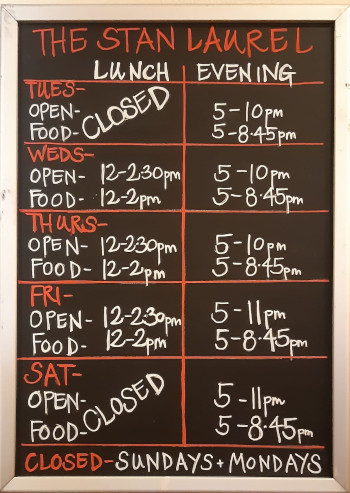 THE STAN LAUREL
LUNCH EVENING
TUES-
OPEN- CLOSED 5-10pm
FOOD- 5-8.45pm
WEDS-
OPEN- 12-2.30pm 5-10pm
FOOD- 12-2pm 5-8.45pm
THURS-
OPEN- 12-2.30pm 5-10pm
FOOD- 12-2pm 5-8.45pm
FRI-
OPEN- 12-2.30pm 5-11pm
FOOD- 12-2pm 5-8.45pm
SAT-
OPEN- CLOSED 5-11pm
FOOD- 5-8.45pm
CLOSED-SUNDAYS+MONDAYS